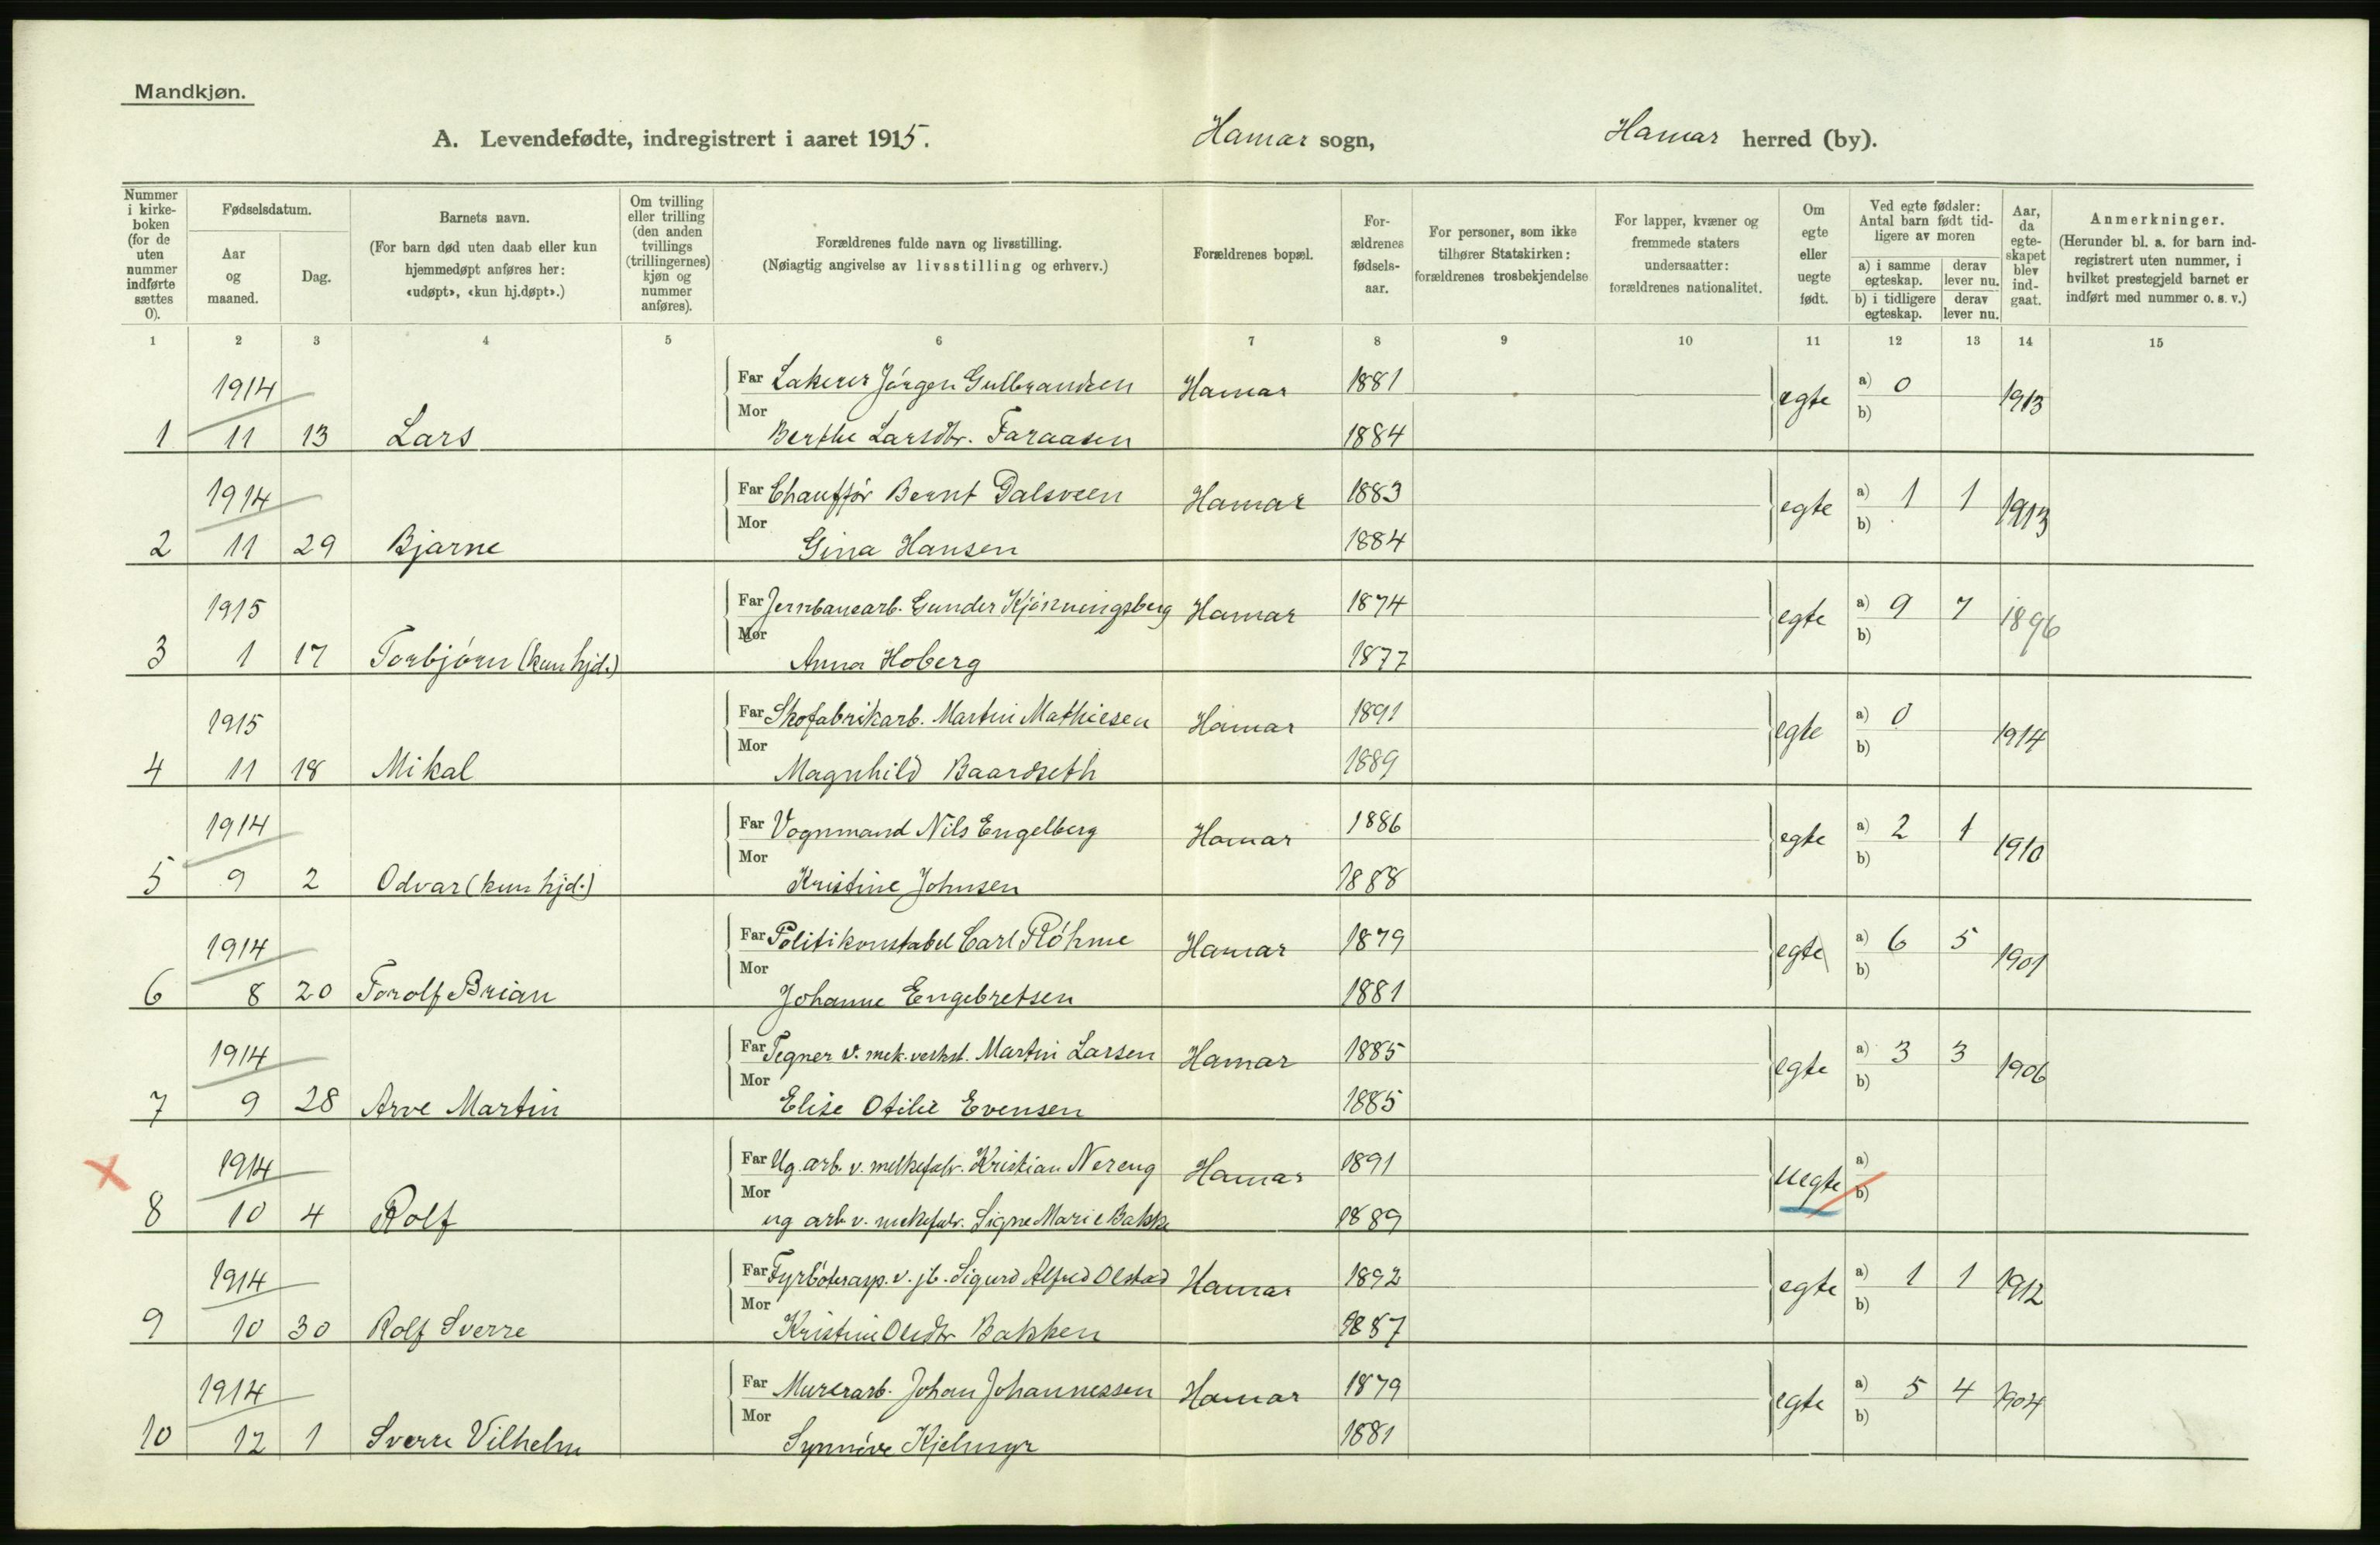 Mandkjøn.
A. Levendefødte, indregistrert i aaret 1915. Hamar sogn, Hamar herred (by).
Nummer i kirke-boken (for de uten nummer indførte sættes 0).
Fødselsdatum.
Aar og maaned.
Dag.
Barnets navn.
(For barn død uten daab eller kun hjemmedøpt anføres her: «udøpt», «kun hj.døpt».)
Om tvilling eller trilling (den anden tvillings (trillingernes) kjøn og nummer anføres).
Forældrenes fulde navn og livsstilling.
(Nøiagtig angivelse av livsstilling og erhverv.)
Forældrenes bopæl.
For-ældrenes fødsels-aar.
For personer, som ikke tilhører Statskirken: forældrenes trosbekjendelse
For lapper, kvæner og fremmede staters undersaatter: forældrenes nationalitet.
Om egte eller uegte født.
Ved egte fødsler: Antal barn født tid-ligere av moren
a) i samme egteskap. derav lever nu.
b) i tidligere egteskap. derav lever nu.
Aar, da egte-skapet blev ind-gaat.
Anmerkninger.
(Herunder bl. a. for barn ind-registrert uten nummer, i hvilket prestegjeld barnet er indført med nummer o. s. v.)
1 2 3 4 5 6 7 8 9 10 11 12 13 14 15
1914 Far Lakerer Jörgen Gulbrandsen Hamar 1881 egte a) 0 1913
Mor b)
1 11 13 Lars Berthe Larsdtr. Faraasen 1884
1914 Far Chaufför Bernt Dalsveen Hamar 1883 egte a) 1 1 1913
Mor b)
2 11 29 Bjarne Gina Hansen 1884
1915 Far Jernbanearb. Gunder Kjönningsberg Hamar 1874 egte a) 9 7 1896
Mor b)
3 1 17 Torbjörn (kun hjd.) Anna Hoberg 1877
1915 Far Skofabrikarb. Martin Mathiesen Hamar 1891 egte a) 0 1914
Mor b)
4 11 18 Mikal Magnhild Baardseth 1889
1914 Far Vognmand Nils Engelberg Hamar 1886 egte a) 2 1 1910
Mor b)
5 9 2 Odvar (kun hjd.) Kristine Johnsen 1888
1914 Far Politikonstabel Carl Röhme Hamar 1879 egte a) 6 5 1901
Mor b)
6 8 20 Torolf Brian Johanne Engebretsen 1881
1914 Far Tegner v. mek. verkst. Martin Larsen Hamar 1885 egte a) 3 3 1906
Mor b)
7 9 28 Arve Martin Elise Otilie Evensen 1885
1914 Far Ug. arb. v. melkefabr. Kristian Nereng Hamar 1891 uegte a)
Mor b)
8 10 4 Rolf ug arb v. melkefabr. Signe Marie Bakke 1889
1914 Far Fyrböterasp. v. jb. Sigurd Alfred Olstad Hamar 1892 egte a) 1 1 1912
Mor b)
9 10 30 Rolf Sverre Kristine Olsdtr Bakken 1887
1914 Far Murerarb. Johan Johannessen Hamar 1879 egte a) 5 4 1904
Mor b)
10 12 1 Sverre Vilhelm Synnöve Kjelmyr 1881